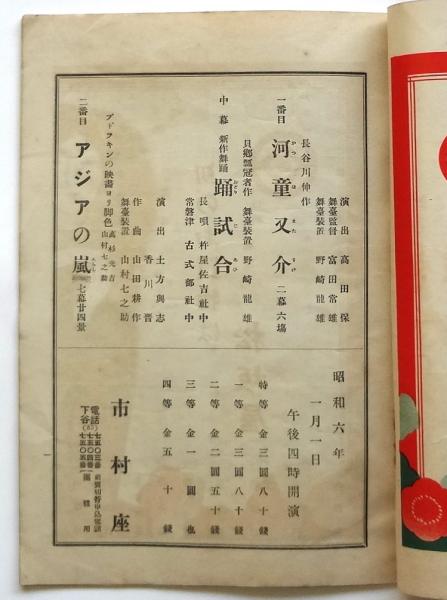 一番目
長谷川伸作
河童又介 二幕六場
かつ は また すけ
演出 高田保
舞臺監督 富田常雄
舞臺裝置 野崎龍雄
中幕
新作舞踊
貝郷瓢冠者作
舞臺裝置 野崎龍雄
踊試合
おどり じ あひ
長唄 杵屋佐吉社中
常磐津 古式部社中
二番目
プドフキンの映畫ヨリ脚色
高杉光吉
山村七之助
アジアの嵐 七幕廿四景
演出 土方與志
香川晋
作曲 山田耕作
舞臺裝置 山村七之助
昭和六年
一月一日
午後四時開演
特等 金三圓八十錢
一等 金三圓八十錢
二等 金二圓五十錢
三等 金一圓也
四等 金五十錢
市村座
電話
下谷
七五〇三番
七五〇四番
七五〇五番